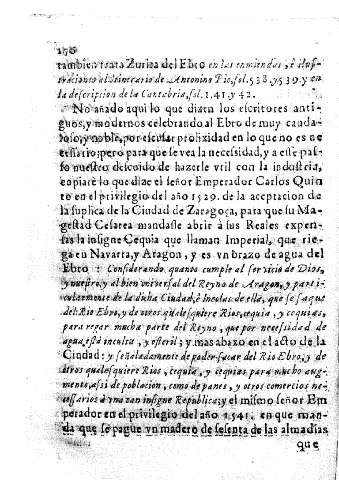 176
tambien trata Zurita del Ebro en las enmiendas, è ilus-
traciones al Itinerario de Antonino Pio, fol. 538. y 539. y en
la descripcion de la Cantabria, fol. 1. 41. y 42.
No añado aqui lo que dizen los escritores anti-
guos, y modernos celebrando al Ebro de muy cauda-
loso, y noble, por escusar prolixidad en lo que no es ne
cessario; pero para que se vea la necessidad, y a este pas-
so nuestro descuido de hazerle vtil con la industria,
copiarè lo que dize el señor Emperador Carlos Quin
to en el privilegio del año 1529. de la aceptacion de
la suplica de la Ciudad de Zaragoça, para que su Ma-
gestad Cesarea mandasse abrir à sus Reales expen-
sas la insigne Cequia que llaman Imperial, que rie-
ga en Navarra, y Aragon, y es vn brazo de agua del
Ebro: Considerando quanto cumple al servicio de Dios,
y nuestro, y al bien vniversal del Reyno de Aragon, y parti-
cularmente de la dicha Ciudad, è incolas de ella, que se saque
del Rio Ebro, y de otros qualesquiere Rios, cequia, y cequias,
para regar mucha parte del Reyno, que por necessidad de
agua, està inculta, y esteril; y mas abaxo en el acto de la
Ciudad: y señaladamente de poder sacar del Rio Ebro, y de
otros qualesquiere Rios, cequia, y cequias para mucho aug-
mento, assi de poblacion, como de panes, y otros comercios ne-
cessarios à vna tan insigne Republica; y el mismo señor Em
perador en el privilegio del año 1541. en que man-
da que se pague vn madero de sesenta de las almadias
que